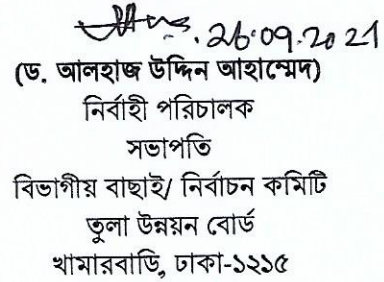 26.09.2021
(ড. আলহাজ উদ্দিন আহাম্মেদ)
নির্বাহী পরিচালক
সভাপতি
বিভাগীয় বাছাই/ নির্বাচন কমিটি
তুলা উন্নয়ন বোর্ড
খামারবাড়ি, ঢাকা-১২১৫